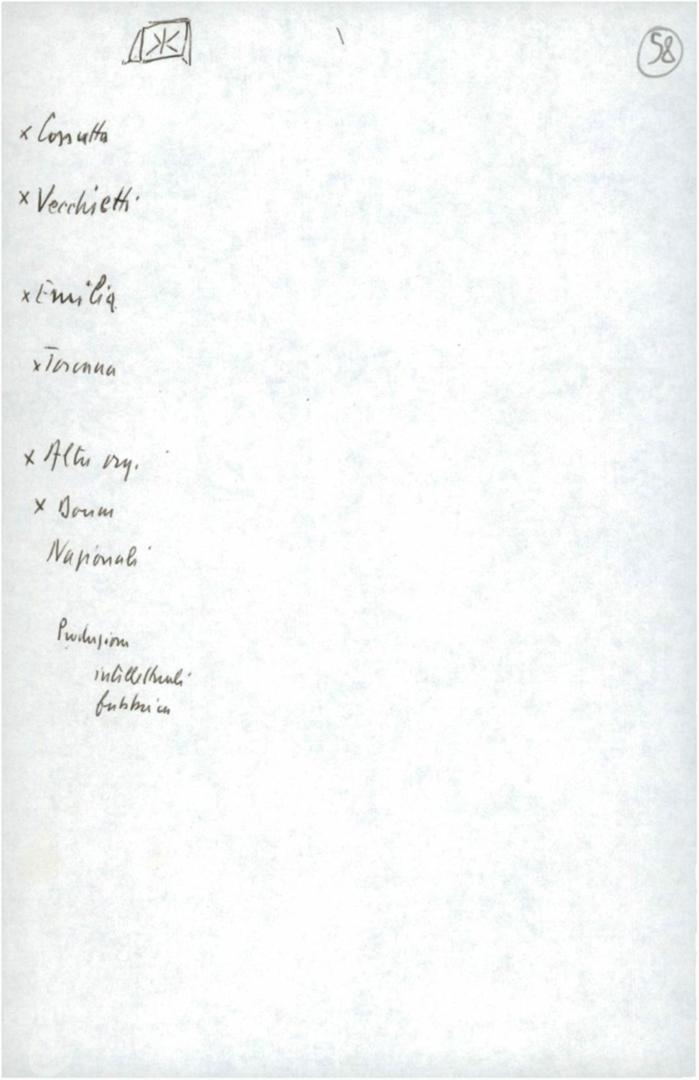 58
x Cossutta
x Vecchietti
x Emilia
x Toscana
x Altre org.
x Donne
Nazionali
Produzione
intellettuali
fabbrica